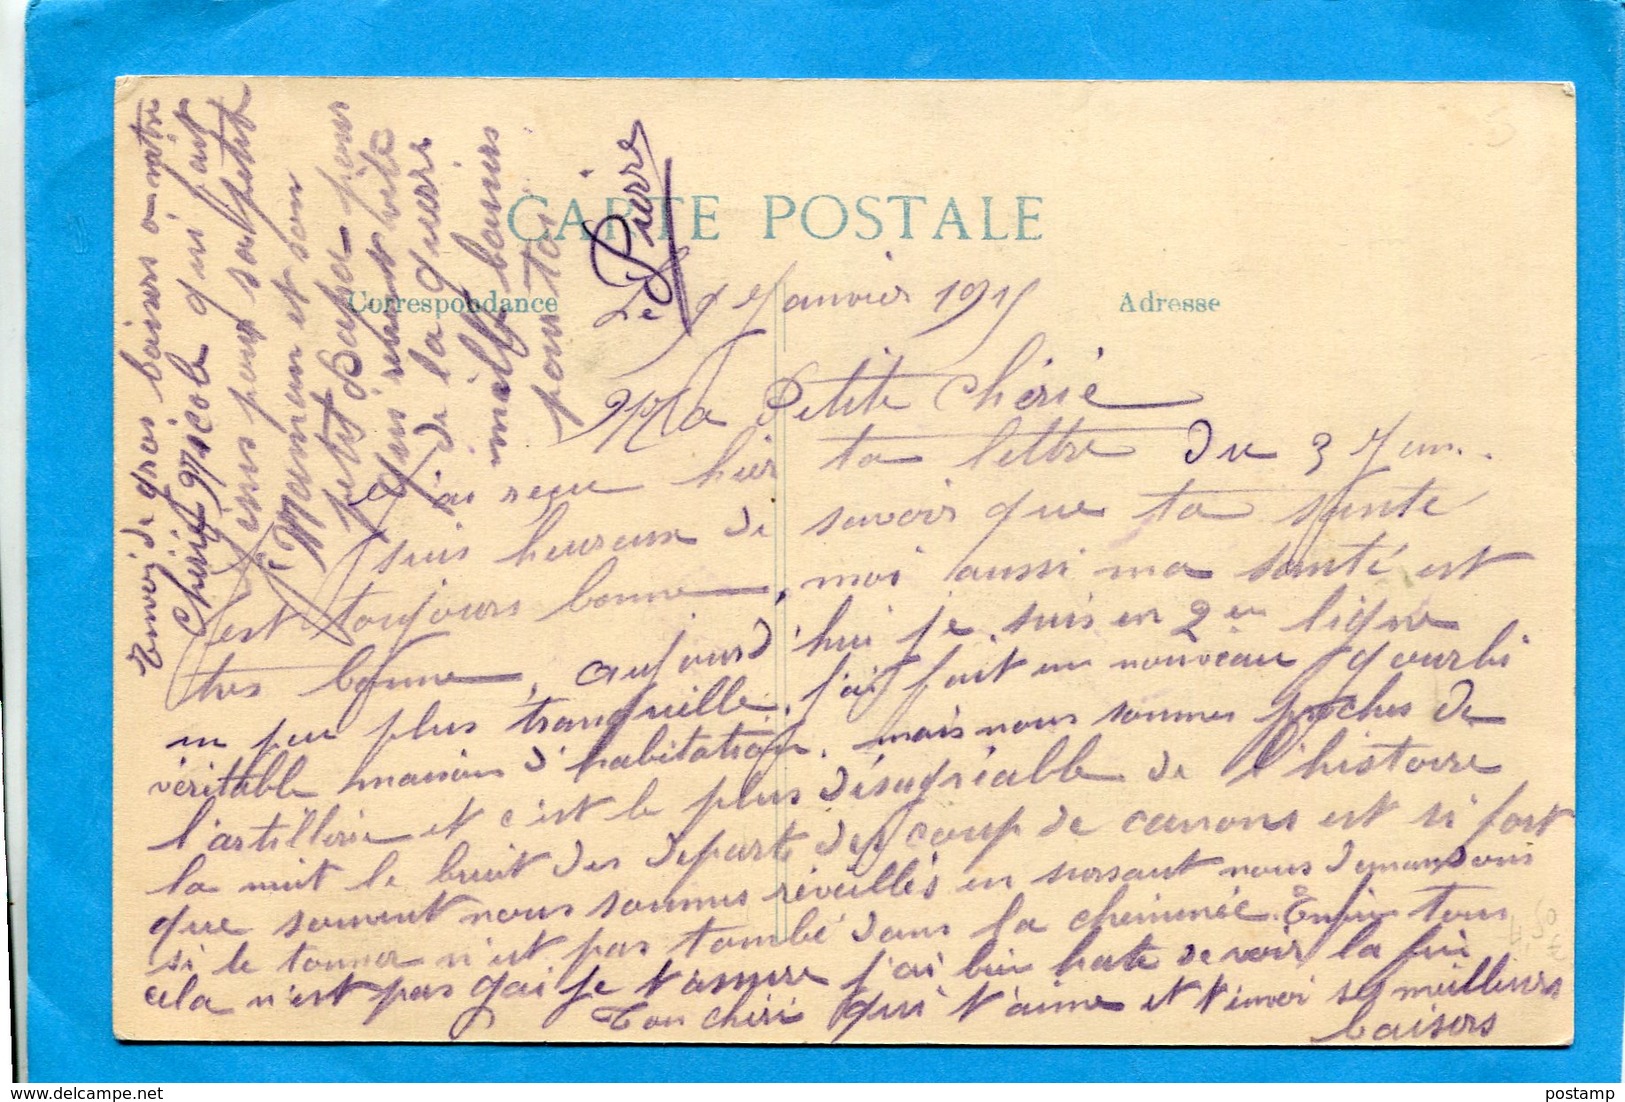 CARTE POSTALE
Correspondance
Adresse
Le 9 Janvier 1915
Ma Petite Chérie
J'ai reçu hier ta lettre du 3 Jan.
suis heureux de savoir que ta santé
est toujours bonne, moi aussi ma santé est
tres bonne, aujourd'hui je suis en 2en ligne
un peu plus tranquille. j'ai fait un nouveau gourbi
véritable maison d'habitation. mais nous sommes proches de
l'artillerie et c'est le plus désagréable de l'histoire
la nuit le bruit des départs des coup de canons est si fort
que souvent nous sommes réveillés en sursaut nous demandons
si le tonner n'est pas tombé dans la cheminée. Enfin tous
cela n'est pas gai je t'assure j'ai bien hate de voir la fin
Ton chéri qui t'aime et t'envoi ses meilleurs
baisers
Envoi de gros baisers a notre
Cherie Nicole qui fait
Jesus pour sa petite
Maman et son
petit Papa pour
qui revient vite
de la guerre
mille baisers
pour toi
Pierre
postamp